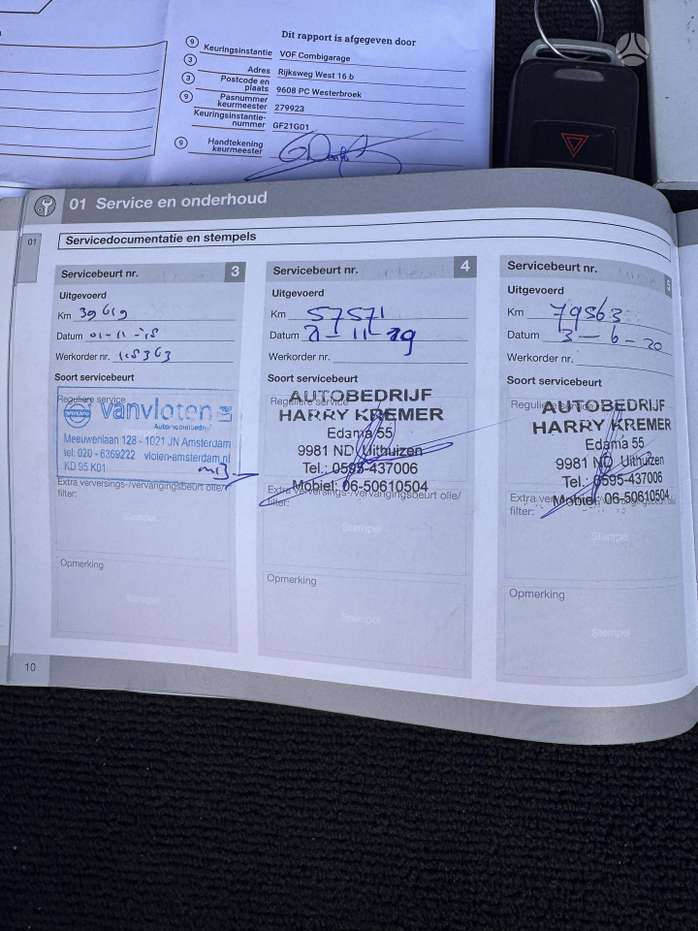 Dit rapport is afgegeven door
9 Keuringsinstantie VOF Combigarage
3 Adres Rijksweg West 16 b
3 Postcode en plaats 9608 PC Westerbroek
9 Pasnummer keurmeester 279923
Keuringsinstantie-nummer GF21G01
9 Handtekening keurmeester
01 Service en onderhoud
01
Servicedocumentatie en stempels
Servicebeurt nr. 3
Uitgevoerd
Km 39619
Datum 01-11-18
Werkorder nr. 
Soort servicebeurt
Reguliere service
vanvloten
Autobedrijf
Meeuwenlaan 128 - 1021 JN Amsterdam
tel: 020 - 6369222 vloten-amsterdam.nl
KD 95 K01
Extra verversings-/vervangingsbeurt olie/
filter:
Stempel
Opmerking
Stempel
Servicebeurt nr. 4
Uitgevoerd
Km 57571
Datum
Werkorder nr.
Soort servicebeurt
Reguliere service
AUTOBEDRIJF
HARRY KREMER
Edama 55
9981 ND Uithuizen
Tel.: 0595-437006
Mobiel: 06-50610504
Extra verversings-/vervangingsbeurt olie/
filter:
Stempel
Opmerking
Stempel
Servicebeurt nr. 5
Uitgevoerd
Km 79563
Datum 3-6-20
Werkorder nr.
Soort servicebeurt
Reguliere service
AUTOBEDRIJF
HARRY KREMER
Edama 55
9981 ND Uithuizen
Tel.: 0595-437006
Mobiel: 06-50610504
filter:
Stempel
Opmerking
Stempel
10